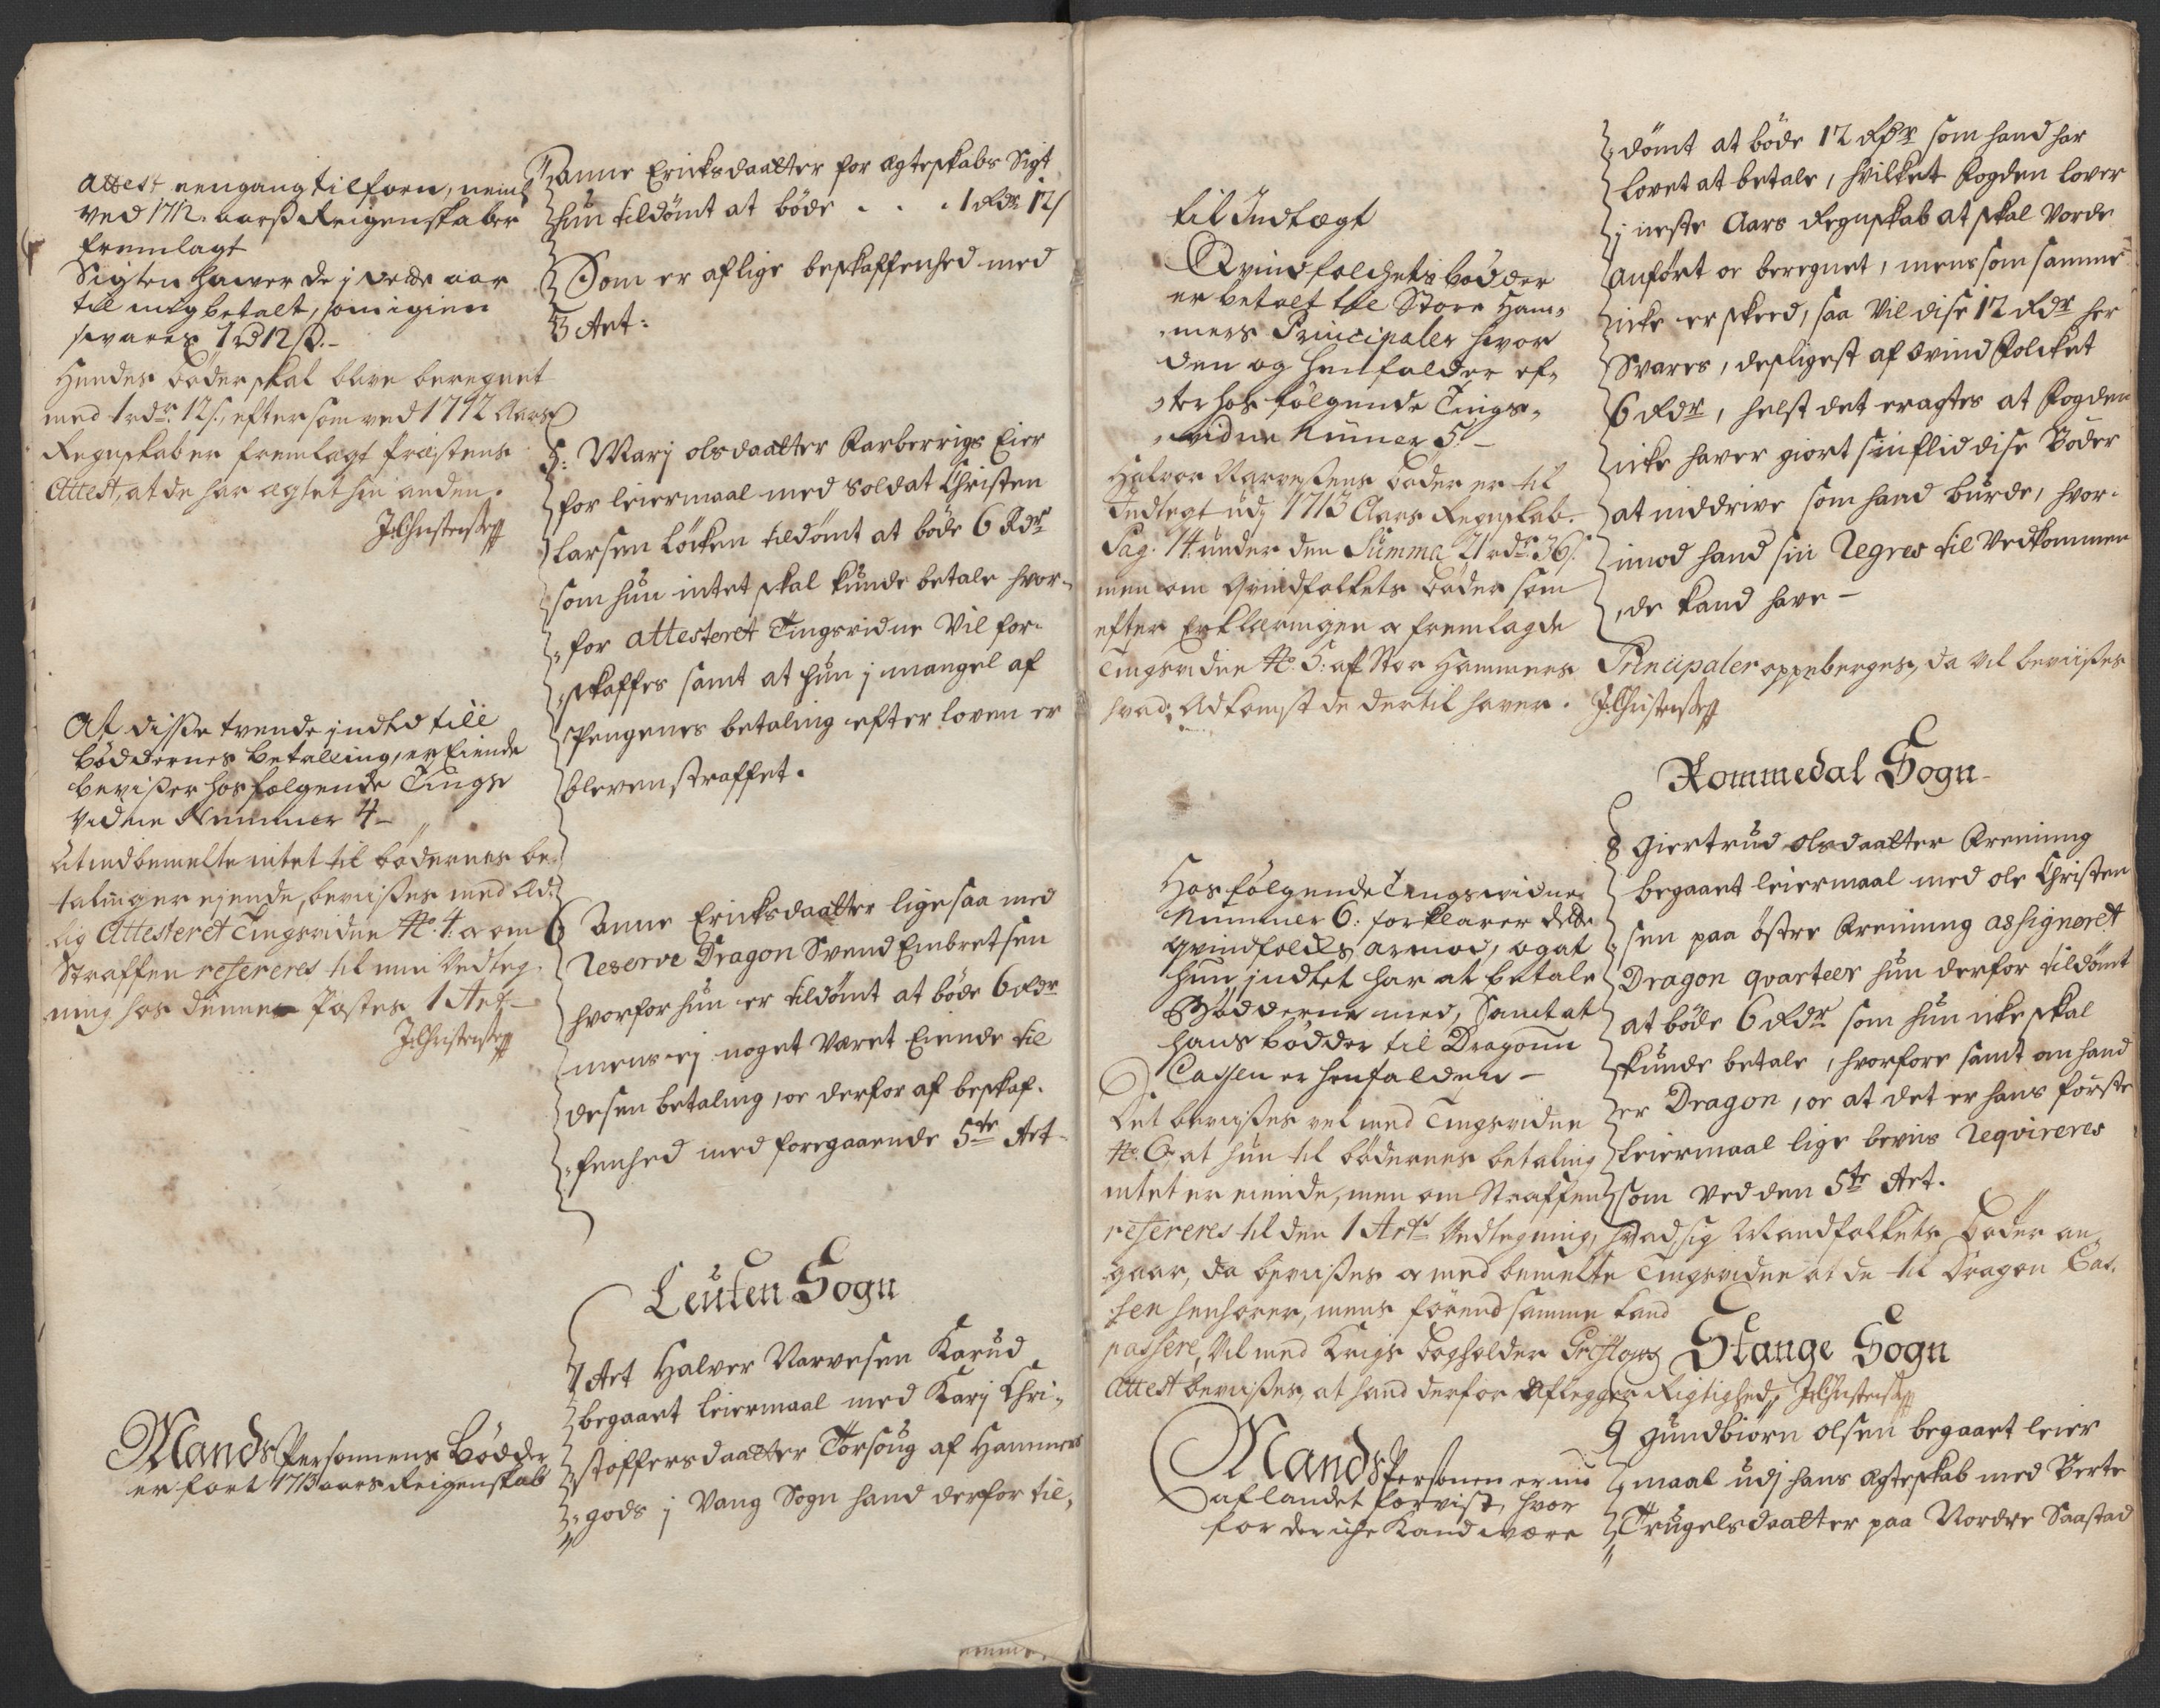 Attest eengang tilforn, neml:
ved 1712. aarß Reigenskaber
fremlagt
Sigten hawer de j dette aar
til mig betalt, som igien
svares 1 rd 12 s.–
Hendes bøder skal blive beregnet
med 1 rdr. 12 s., eftersom ved 1712 Aars
Regnskaber fremlagt Præstens
Attest, at de har ægtet hin anden.
JChristensen
Af disse tvende jndted till
bøddernes betalling, er Eiende
beviser hosfølgende Tings
vidne Nummer 4 –
At indbemelte intet til bødernes be-
taling er ejende, beviises med
lig Attesteret Tingsvidne No. 4. og om
Straffen refereres til min Vedteg-
ning hos denne Postes 1 Art. –
JChristensen
Mands Personnens Bødder
er fort 1713 aars Reigenskab
Anne Ericksdaatter for ægteskabs Sigt
hun tildömt at böde . . . 1 Rdr 12 s
Som er aflige beskaffenhed med
3 Art:
5: Marj olsdaatter Karberrigs Eier
for leiermaal med Soldat Christen
Larsen Löcken tildömt at böde 6 Rdr
som hun intet skal kunde betale hvor-
for attesteret Tingsvidne Vil for-
skaffes samt at hun j mangel af
Pengenes betaling efter loven er
bleven straffet.
6 Anne Ericksdaatter ligesaa med
Reserve Dragon Svend Embretsen
hvorfor hun er tildömt at böde 6 Rdr
mens ej noget været Eiende til
dessen betaling, oc derfor af beskaf-
fenhed med foregaaende 5te Art
Leuten Sogn
7 Art Halver Narvesen Karud
begaaet leiermaal med Karj Chri-
stoffersdaatter Torsoug af Hammers
gods j Vang Sogn hand derfor til-
til Indtægt
Qvindfolchets bødder
er betalt til Store Ham-
mers Principaler hvor
den og henfalder ef-
ter hosfølgende Tings-
vidne Numer 5. –
Halvor Narvesens bøder er til
Indtegt udj 1713 Aars Regnskab.
Pag. 14 under den Summa 21 rdr. 36 s.
men om Qvindfolkets bøder som
efter Erklæringen og fremlagde
Tingsvidne No 5: af Stor Hammers Principaler oppeberges, da vil beviises
hvad Adkomst de dertil haver. JChristensen
Hosfølgende Tingsvidne
Nummer 6: forklarer dette
qvindfolcks armod, og at
hun, jndtet har at betale
Bødderne med, Samt at
hans bødder til Dragoun
Cassen er henfalden –
Det beviises vel med Tingsvidne
No. 6. at hun til bødernes betaling
intet er eiende, men om Straffen
refereres til den 1 Arts Vedtegning, hvad sig Mandfolkets bøder an-
gaar, da beviises og med bemelte Tingsvidne at de til Dragon Cas-
sen henhører, mens førend samme kand
passere, Vil med Krigs bogholder
Attest beviises, at hand derfor aflegger Rigtighed, JChristensen
Mands Personen er nu
af landet forvist, hvor
for der iche Kand være
dömt at böde 12 Rdr som hand har
lovet at betale, hvilket Fogden lover
j neste Aars Regnskab at skal vorde
anfört oc beregnet, mens som samme
icke er skeed, saa Vil disse 12 Rdr her
Svares, desligest af Qvind Folcket
6 Rdr, helst det eragtes at Fogden
icke haver giort sin flid disse Böder
at inddrive som hand burde, hvor-
imod hand sin Regres til Vedkommen
de kand have –
Rommedal Sogn
8 Giertrud olsdaatter Frenning
begaaet leiermaal med ole Christen
sen paa östre Frenning assigneret
Dragon qvarteer hun derfor tildömt
at böde 6 Rdr som hun icke skal
kunde betale, hvorfore samt om hand
er Dragon, oc at det er hans förste
leiermaal lige beviis Reqvireres
som ved den 5te Art.
Stange Sogn
9 Gundbiörn olsen begaaet leier
maal udj hans ægteskab med Berte
Trugelsdaatter paa Nordre Saastad